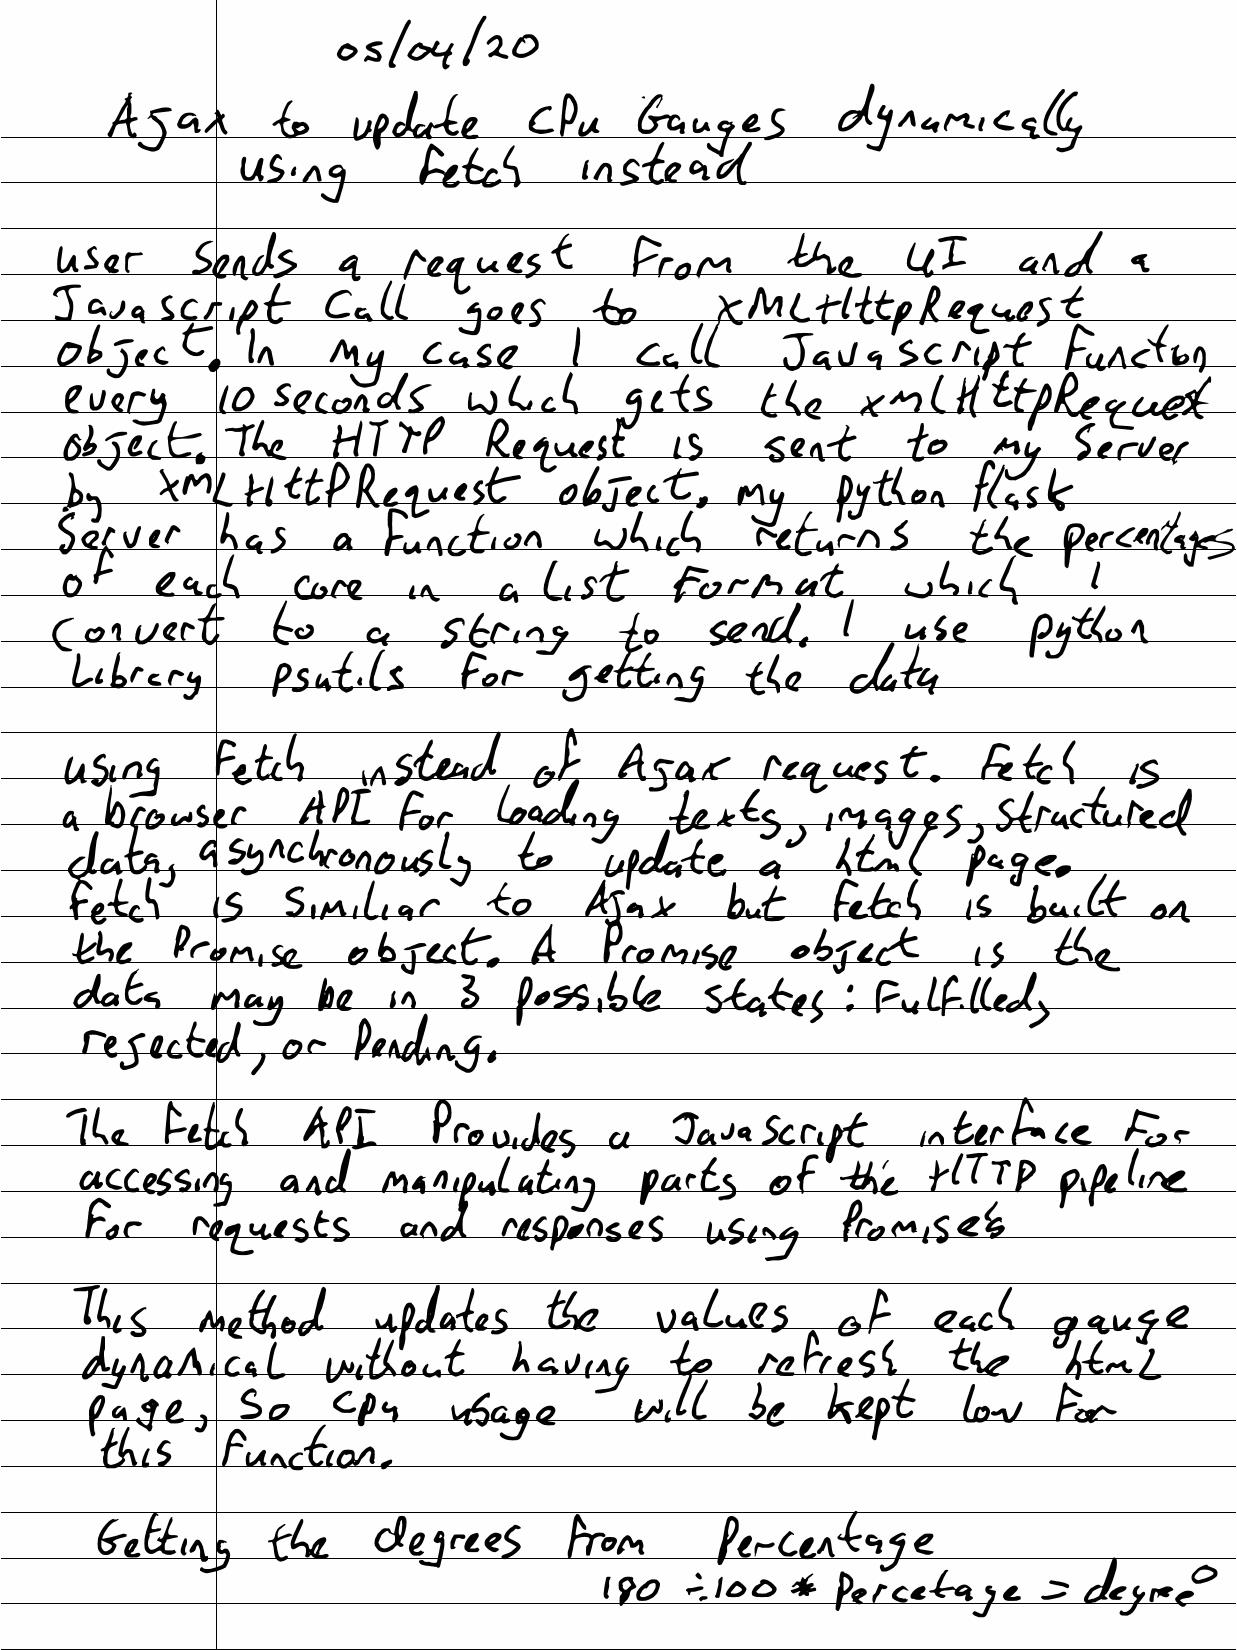 05/04/20
Ajax to update CPu Gauges dynamically
using Fetch instead
user sends a request From the UI and a
Javascript Call goes to XMLHttpRequest
object. In my case I call Javascript Functon
every 10 seconds which gets the xmlHttpRequest
object. The HTTP Request is sent to my Server
by XMLHttPRequest object. my python flask
Server has a function which returns the percentages
of each core in a list Format which I
Convert to a string to send. I use python
Library psutils For getting the data
using Fetch instead of Ajax request. Fetch is
a browser API For loading texts, images, structured
data, asynchronously to update a html page.
Fetch is similiar to Ajax but Fetch is built on
the Promise object. A Promise object is the
data may be in 3 possible states: Fulfilled,
rejected, or Pending.
The Fetch API Provides a JavaScript interface For
accessing and manipulating parts of the HTTP pipeline
For requests and responses using Promise's
This method updates the values of each gauge
dynamical without having to refresh the html
page, So cpu usage will be kept low For
this function.
Getting the degrees From Percentage
180 ÷ 100 * Percetage = degree°